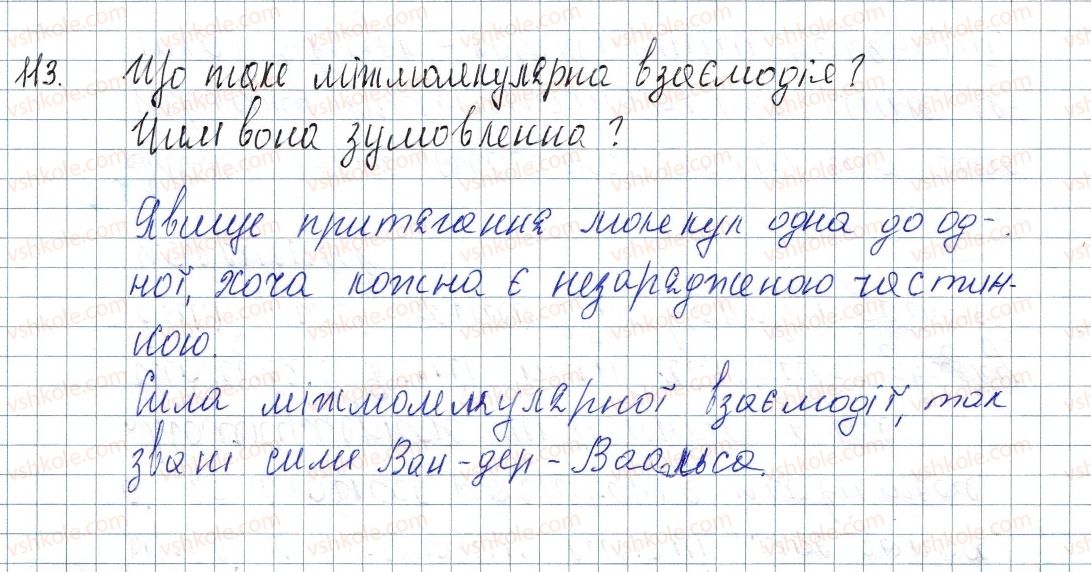 113. Що таке міжмолекулярна взаємодія?
Чим вона зумовленна?
Явище притягання молекул одна до од-
ної, хоча кожна є незарядженою частин-
кою.
Сила міжмолекулярної взаємодії, так
звані сили Ван-дер-Ваальса.